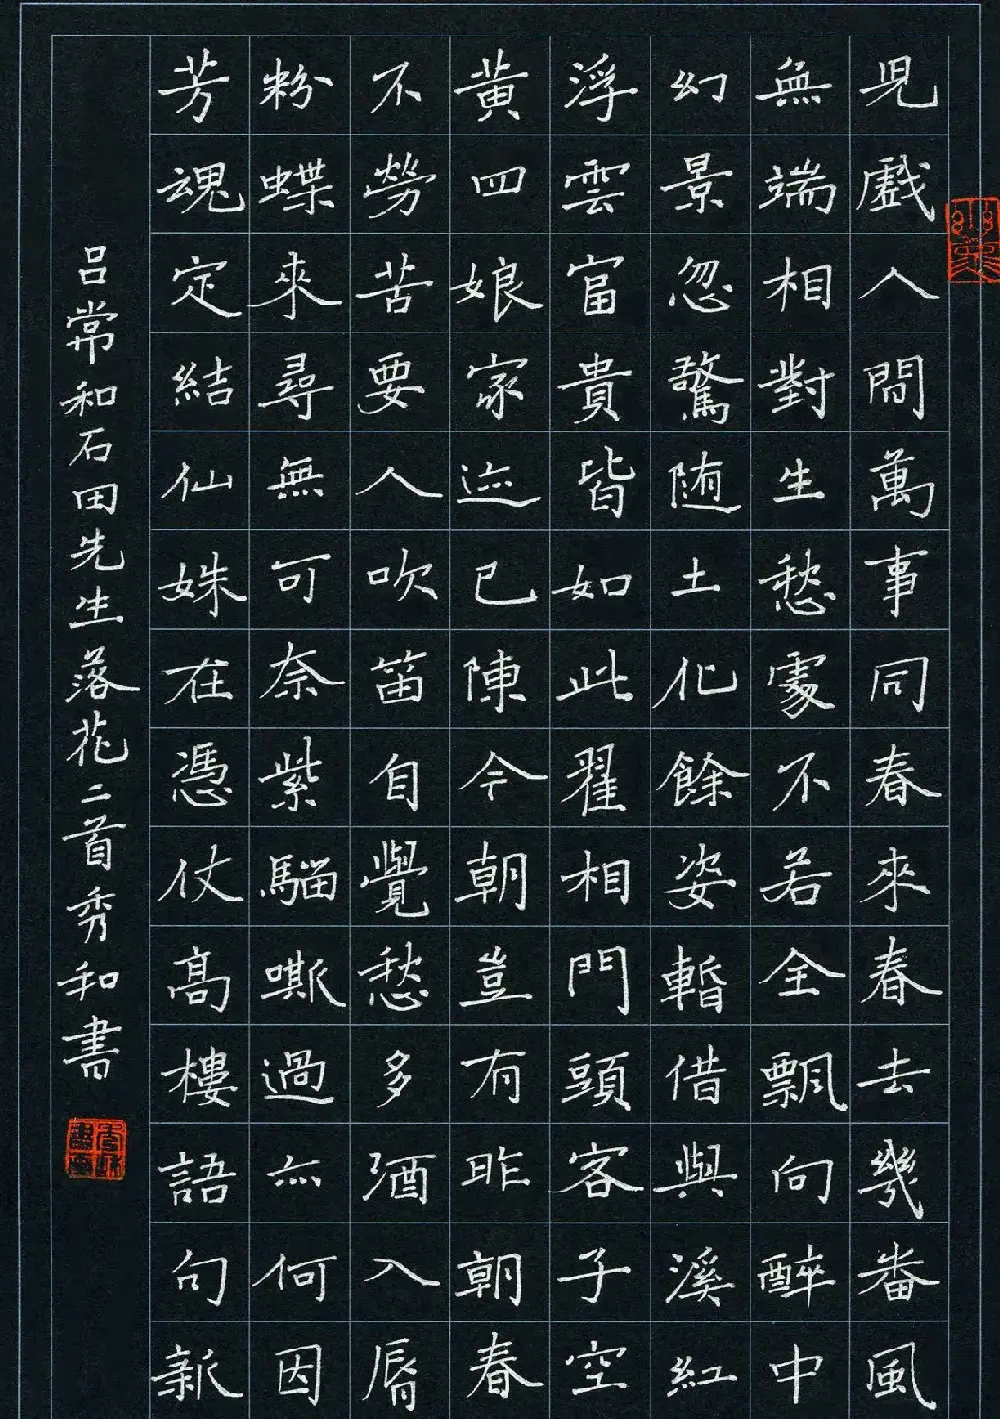 兒戲人間萬事同春來春去幾番風
無端相對生愁處不若全飄向醉中
幻景忽驚随土化餘姿暫借與溪紅
浮雲富貴皆如此翟相門頭客子空
黃四娘家迹已陳今朝豈有昨朝春
不勞苦要人吹笛自覺愁多酒入脣
粉蝶來尋無可奈紫騮嘶過亦何因
芳魂定結仙姝在憑仗高樓語句新
吕常和石田先生落花二首秀和書